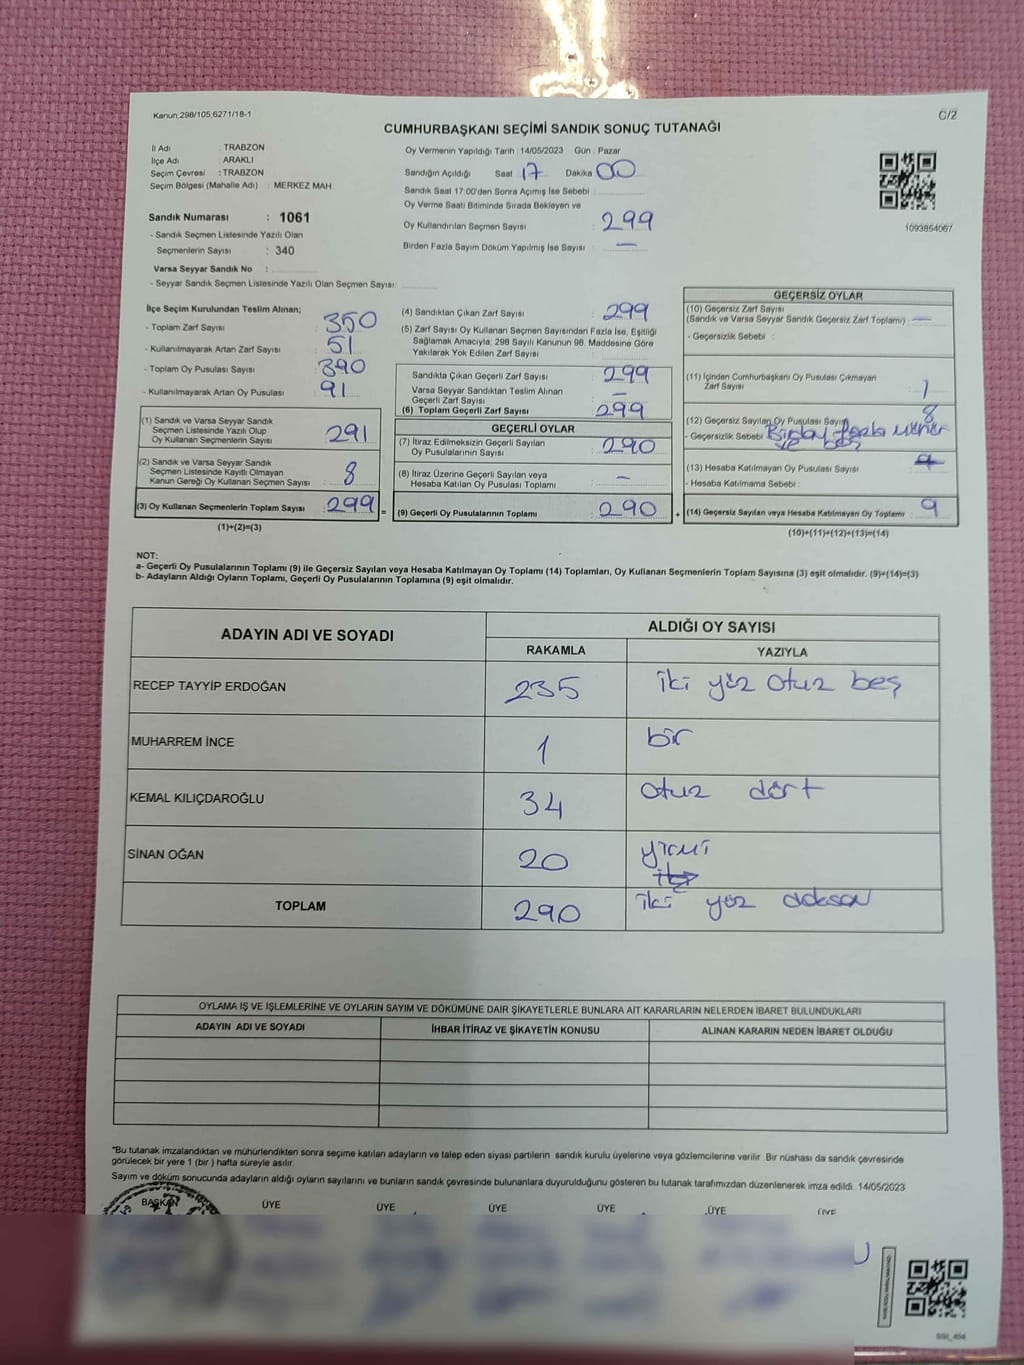 Kanun;298/105,6271/18-1
C/2
CUMHURBAŞKANI SEÇİMİ SANDIK SONUÇ TUTANAĞI
İl Adı : TRABZON
İlçe Adı : ARAKLI
Seçim Çevresi : TRABZON
Seçim Bölgesi (Mahalle Adı) : MERKEZ MAH.
Sandık Numarası : 1061
- Sandık Seçmen Listesinde Yazılı Olan
Seçmenlerin Sayısı : 340
Varsa Seyyar Sandık No :
- Seyyar Sandık Seçmen Listesinde Yazılı Olan Seçmen Sayısı:
Oy Vermenin Yapıldığı Tarih :14/05/2023 Gün : Pazar
Sandığın Açıldığı Saat 17 Dakika 00
Sandık Saat 17:00'den Sonra Açımış İse Sebebi :
Oy Verme Saati Bitiminde Sırada Bekleyen ve
Oy Kullandırılan Seçmen Sayısı : 299
Birden Fazla Sayım Döküm Yapılmış İse Sayısı : —
1093854067
İlçe Seçim Kurulundan Teslim Alınan;
- Toplam Zarf Sayısı : 350
- Kullanılmayarak Artan Zarf Sayısı : 51
- Toplam Oy Pusulası Sayısı : 390
- Kullanılmayarak Artan Oy Pusulası : 91
(1) Sandık ve Varsa Seyyar Sandık
Seçmen Listesinde Yazılı Olup
Oy Kullanan Seçmenlerin Sayısı : 291
(2) Sandık ve Varsa Seyyar Sandık
Seçmen Listesinde Kayıtlı Olmayan
Kanun Gereği Oy Kullanan Seçmen Sayısı : 8
(3) Oy Kullanan Seçmenlerin Toplam Sayısı : 299
(1)+(2)=(3)
(4) Sandıktan Çıkan Zarf Sayısı : 299
(5) Zarf Sayısı Oy Kullanan Seçmen Sayısından Fazla İse, Eşitliği
Sağlamak Amacıyla, 298 Sayılı Kanunun 98. Maddesine Göre
Yakılarak Yok Edilen Zarf Sayısı :
Sandıkta Çıkan Geçerli Zarf Sayısı : 299
Varsa Seyyar Sandıktan Teslim Alınan
Geçerli Zarf Sayısı : —
(6) Toplam Geçerli Zarf Sayısı : 299
GEÇERLİ OYLAR
(7) İtiraz Edilmeksizin Geçerli Sayılan
Oy Pusulalarının Sayısı : 290
(8) İtiraz Üzerine Geçerli Sayılan veya
Hesaba Katılan Oy Pusulası Toplamı : —
= (9) Geçerli Oy Pusulalarının Toplamı : 290
GEÇERSİZ OYLAR
(10) Geçersiz Zarf Sayısı
(Sandık ve Varsa Seyyar Sandık Geçersiz Zarf Toplamı) : —
- Geçersizlik Sebebi :
(11) İçinden Cumhurbaşkanı Oy Pusulası Çıkmayan
Zarf Sayısı : 1
(12) Geçersiz Sayılan Oy Pusulası Sayısı : 8
- Geçersizlik Sebebi : fazla mühür
(13) Hesaba Katılmayan Oy Pusulası Sayısı :
- Hesaba Katılmama Sebebi :
+ (14) Geçersiz Sayılan veya Hesaba Katılmayan Oy Toplamı : 9
(10)+(11)+(12)+(13)=(14)
NOT:
a- Geçerli Oy Pusulalarının Toplamı (9) ile Geçersiz Sayılan veya Hesaba Katılmayan Oy Toplamı (14) Toplamları, Oy Kullanan Seçmenlerin Toplam Sayısına (3) eşit olmalıdır. (9)+(14)=(3)
b- Adayların Aldığı Oyların Toplamı, Geçerli Oy Pusulalarının Toplamına (9) eşit olmalıdır.
ADAYIN ADI VE SOYADI
ALDIĞI OY SAYISI
RAKAMLA YAZIYLA
RECEP TAYYİP ERDOĞAN 235 iki yüz otuz beş
MUHARREM İNCE 1 bir
KEMAL KILIÇDAROĞLU 34 otuz dört
SİNAN OĞAN 20 yirmi
TOPLAM 290 iki yüz doksan
OYLAMA İŞ VE İŞLEMLERİNE VE OYLARIN SAYIM VE DÖKÜMÜNE DAİR ŞİKAYETLERLE BUNLARA AİT KARARLARIN NELERDEN İBARET BULUNDUKLARI
ADAYIN ADI VE SOYADI İHBAR İTİRAZ VE ŞİKAYETİN KONUSU ALINAN KARARIN NEDEN İBARET OLDUĞU
"Bu tutanak imzalandıktan ve mühürlendikten sonra seçime katılan adayların ve talep eden siyasi partilerin sandık kurulu üyelerine veya gözlemcilerine verilir .Bir nüshası da sandık çevresinde
görülecek bir yere 1 (bir ) hafta süreyle asılır.
Sayım ve döküm sonucunda adayların aldığı oyların sayılarını ve bunların sandık çevresinde bulunanlara duyurulduğunu gösteren bu tutanak tarafımızdan düzenlenerek imza edildi. 14/05/2023
BAŞKAN ÜYE ÜYE ÜYE ÜYE ÜYE ÜYE